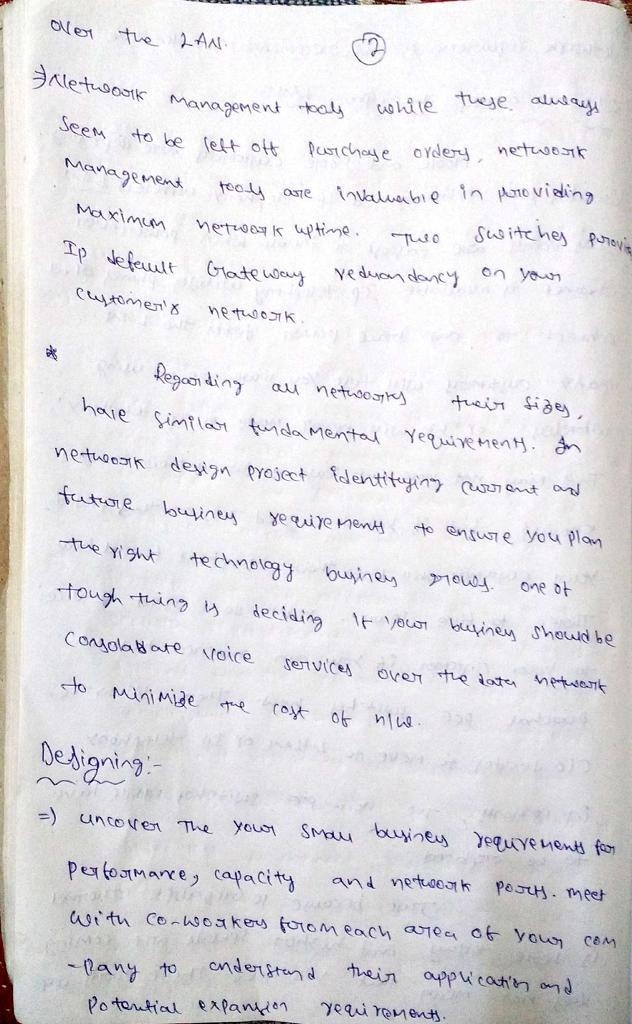 over the LAN.
2
⇒ Network Management tools while these always
Seem to be left off purchase orders, network
Management tools are invaluable in providing
Maximum network uptime. Two switches provi
Ip default Gateway reduandancy on your
customer's network.
* Regarding all networks their sizes,
have similar fundamental requirements. In
network design project identifying current and
future business requirements to ensure you plan
the right technology business grows. one of
tough thing is deciding If your business should be
voice services over the data network
to minimize the cost of n/w.
Designing:-
=) uncover the your small business requirements for
performance, capacity and network ports. meet
with co-workers from each area of your com
-pany to understand their application and
potential expansion requirements.